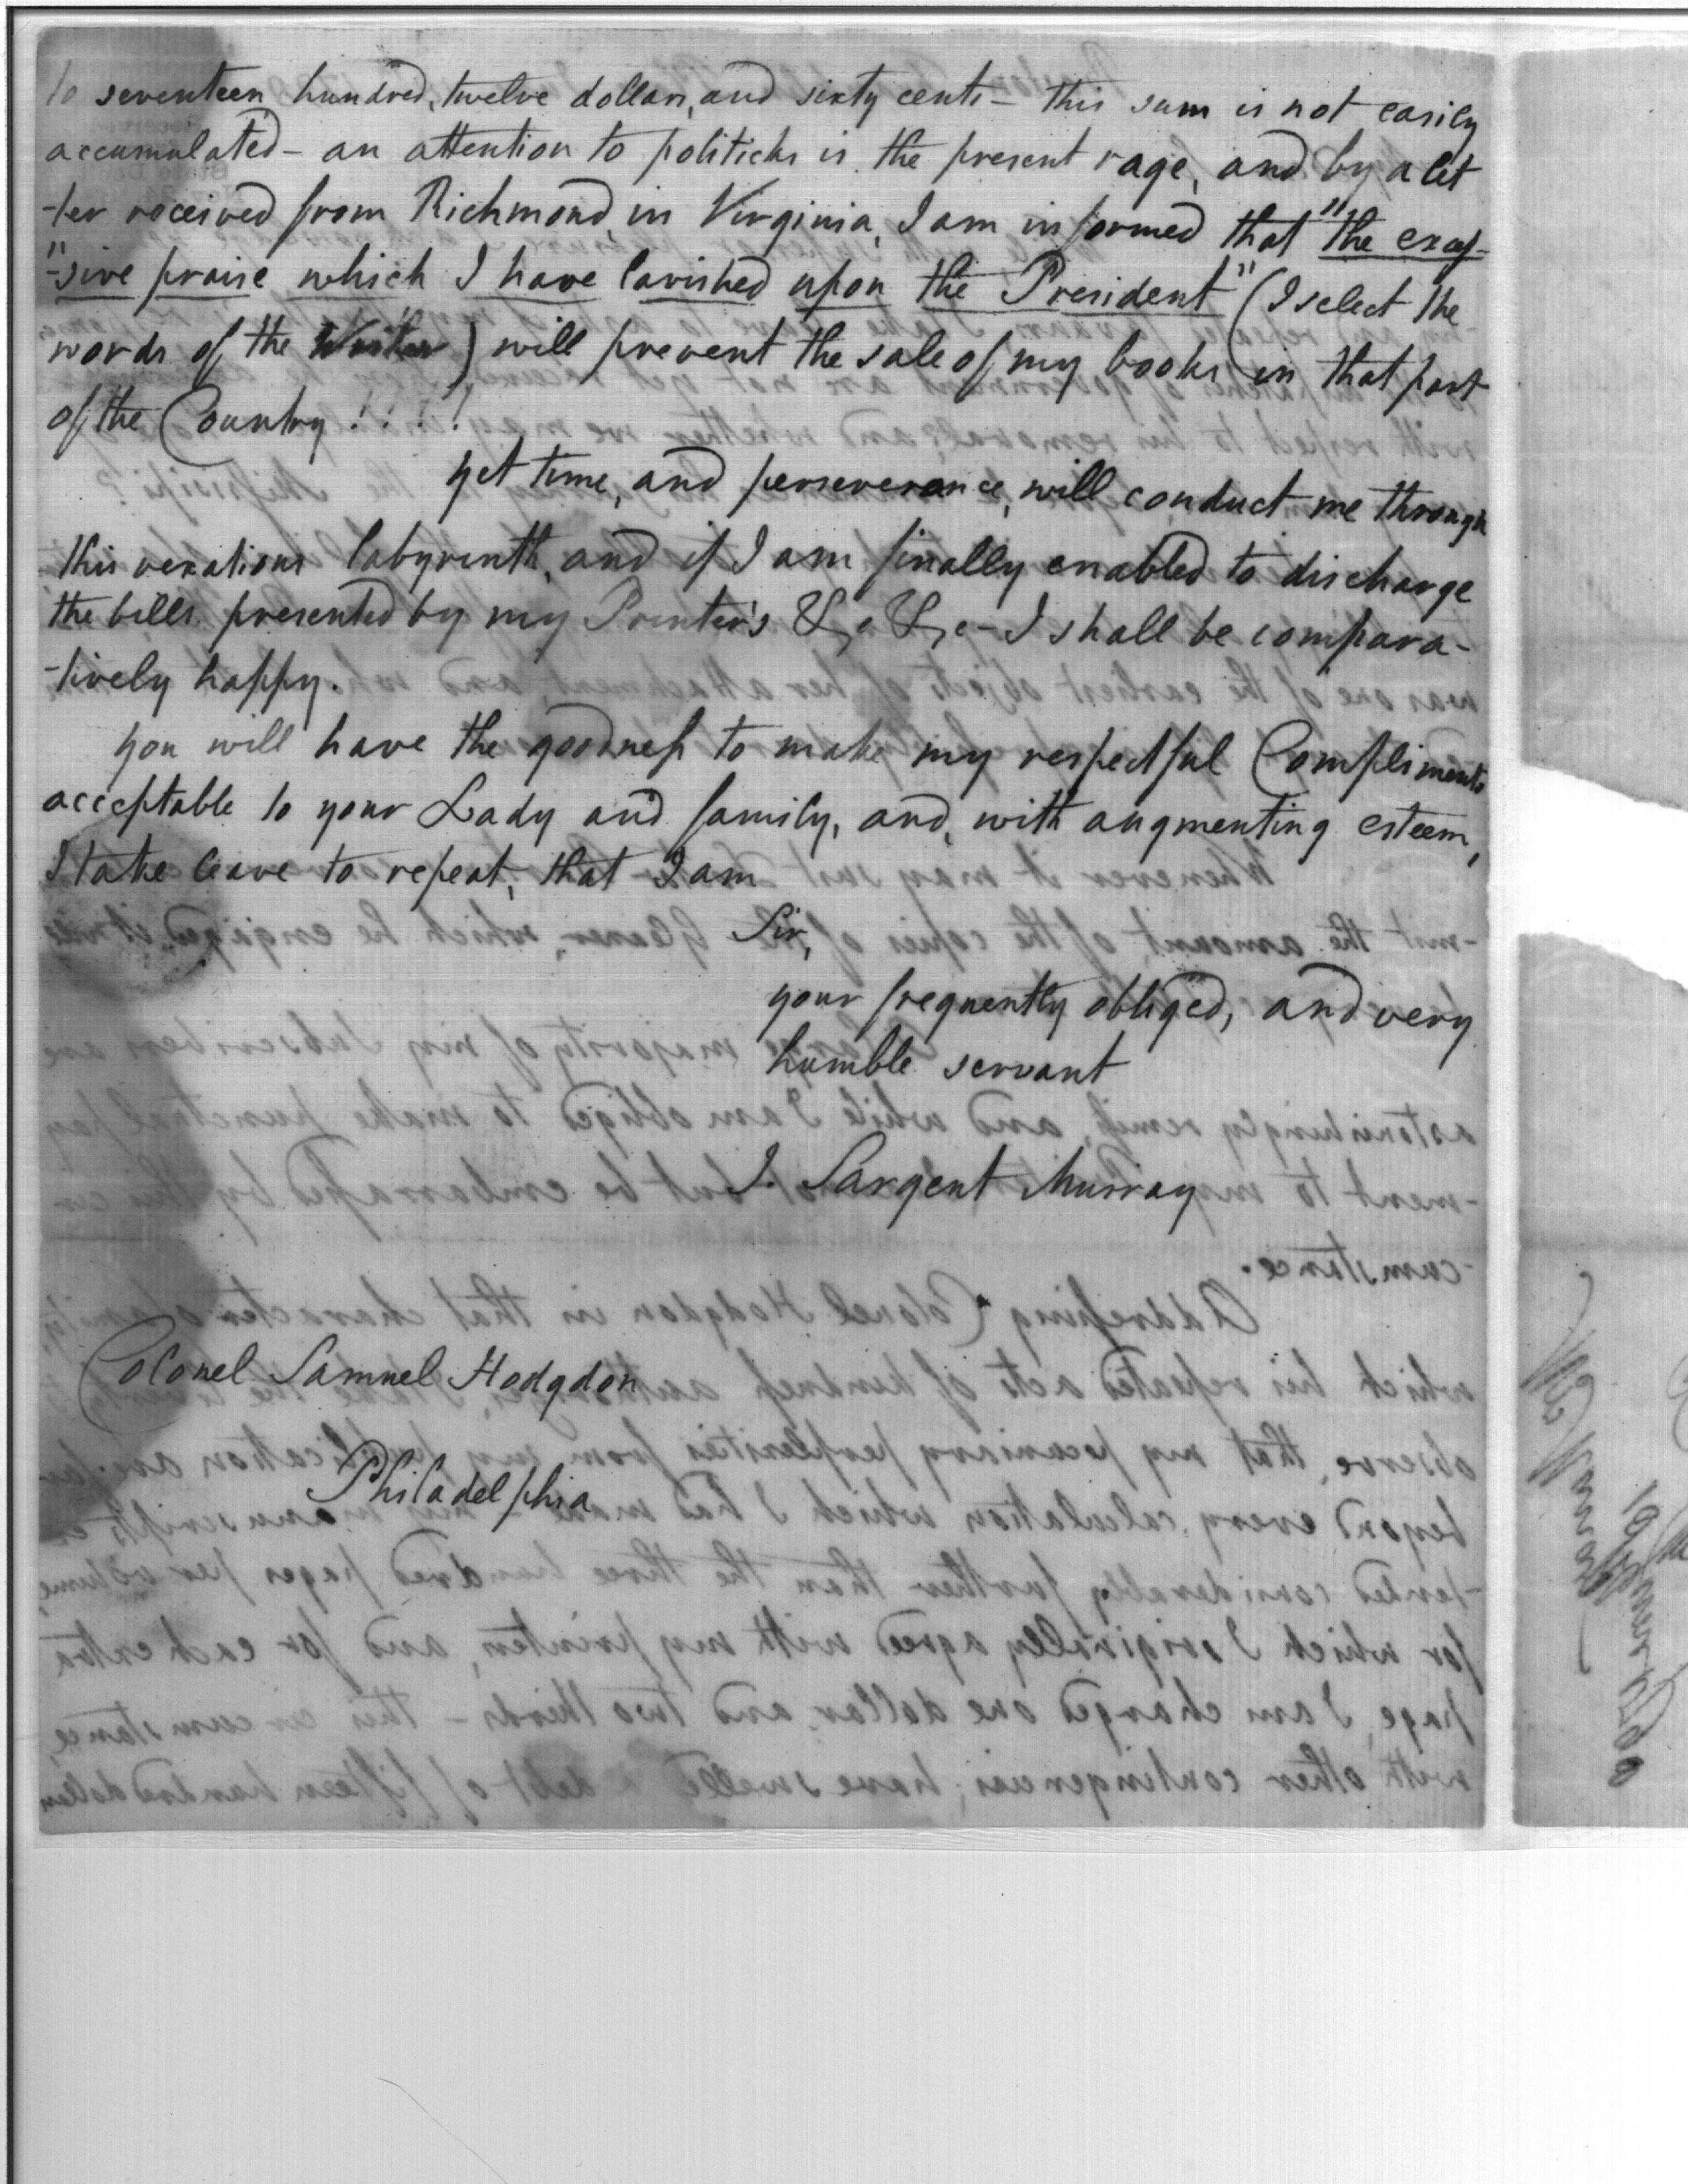 to seventeen hundred, twelve dollars, and sixty cents – this sum is not easily
accumulated – an attention to politicks is the present rage, and by a let
-ter received from Richmond, in Virginia, I am informed that "the exces-
"-sive praise which I have lavished upon the President" (I select the
words of the Writer) will prevent the sale of my books in that part
of the Country ! ! ! !
yet time, and perseverance, will conduct me through
this vexatious labyrinth, and if I am finally enabled to discharge
the bills presented by my Printer's &c &c – I shall be compara-
-tively happy.
you will have the goodness to make my respectful Compliments
acceptable to your Lady and family, and, with augmenting esteem,
I take leave to repeat, that I am
Sir,
your frequently obliged, and very
humble servant
J. Sargent Murray
Colonel Samuel Hodgdon
Philadelphia